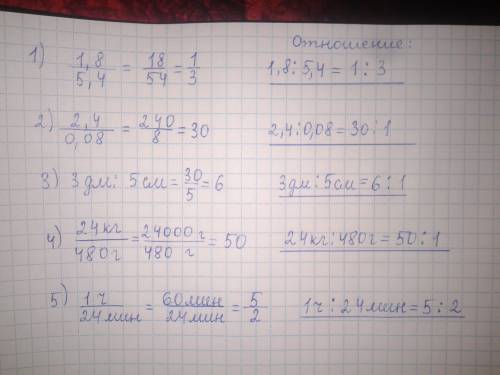 Отношение:
1) 1,8/5,4 = 18/54 = 1/3 1,8:5,4 = 1:3
2) 2,4/0,08 = 240/8 = 30 2,4:0,08 = 30:1
3) 3 дм: 5 см = 30/5 = 6 3 дм:5 см = 6:1
4) 24 кг/480 г = 24000 г/480 г = 50 24 кг:480 г = 50:1
5) 1 ч/24 мин = 60 мин/24 мин = 5/2 1 ч:24 мин = 5:2